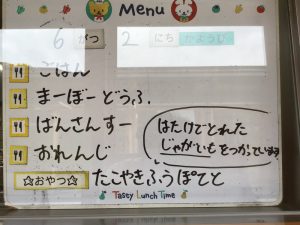 Menu
6 がつ 2 にち かようび
ごはん
まーぼーどうふ
ばんさんすー
おれんじ
はたけでとれた
じゃがいもをつかっています
☆おやつ☆ たこやきふうぽてと
Tasty Lunch Time